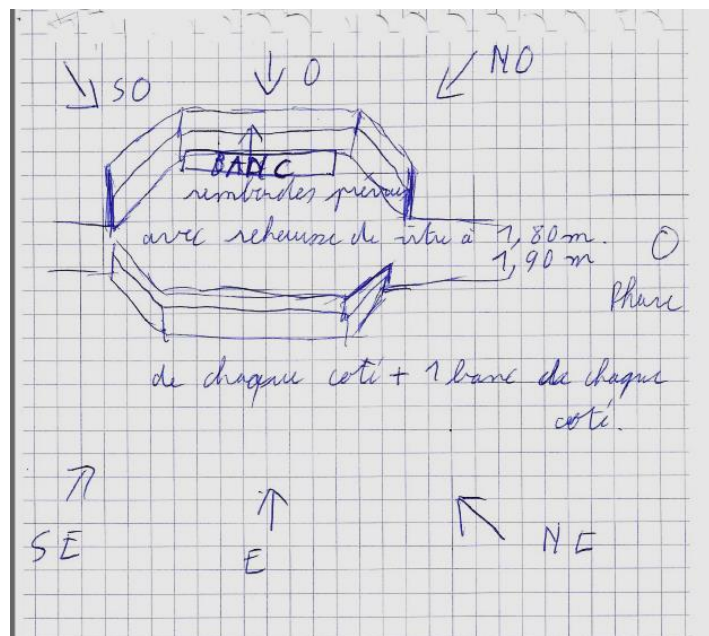 SO O NO
BANC
rembardes prévues
avec rehausse de vitre à 1,80 m.
1,90 m
Phare
de chaque coté + 1 banc de chaque
coté.
SE E NE